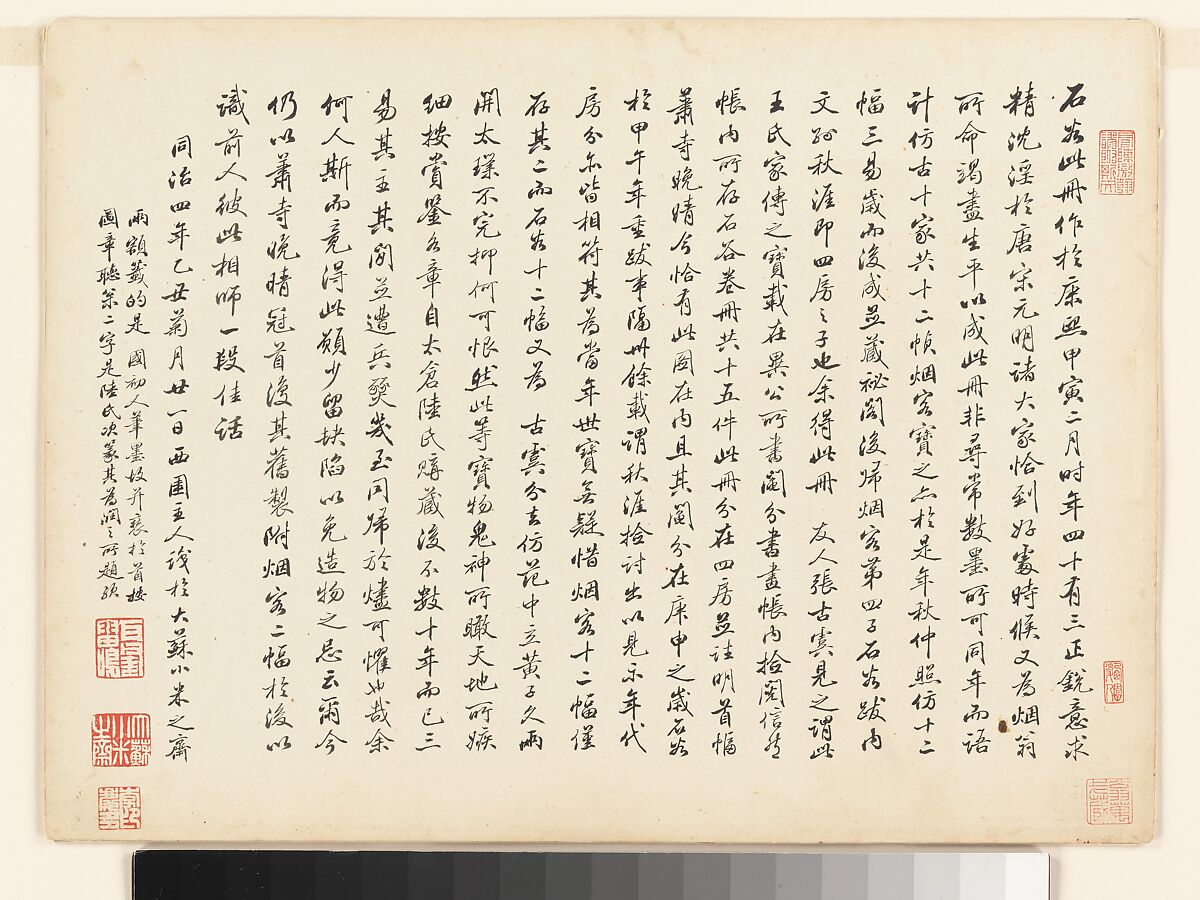 石谷此冊作於康熙甲寅二月时年四十有三正銳意求
精沈淫於唐宋元明諸大家恰到好處時候又為烟翁
所命竭盡生平以成此冊非尋常數墨所可同年而語
计仿古十家共十二幀烟客寶之亦於是年秋仲照仿十二
幅三易歲而後成並藏祕閣後歸烟客第四子石谷跋内
文孫秋涯即四房之子也余得此冊 友人張古雲見之謂此
王氏家傳之寶載在異公所書鬮分書畫帳内拾閱信然
帳内所存石谷卷冊共十五件此冊分在四房並註明首幅
蕭寺晚晴今恰有此圖在内且其鬮分在庚申之歲石谷
於甲午年重跋事隔卅餘載謂秋涯拾討出以見示年代
房分亦皆相符其為當年世寶無疑惜烟客十二幅僅
存其二而石谷十二幅又為 古雲分去仿范中立黃子久兩
開太璞不完抑何可恨然此等寶物鬼神所瞰天地所嫉
细按賞鑒各章自太倉陸氏購藏後不數十年而已三
易其主其閣並遭兵燹幾至同歸於燼可懼也哉余
何人斯而竟得此願少留缺陷以免造物之忌云爾今
仍以蕭寺晚晴冠首復其舊製附烟客二幅於後以
識前人彼此相師一段佳话
同治四年乙丑菊月廿一日西圃主人識於大蘇小米之齋
兩額籤的是 國初人筆墨故并裱於首按
圖章聽泉二字是陸氏次篆其為潤之所題欤